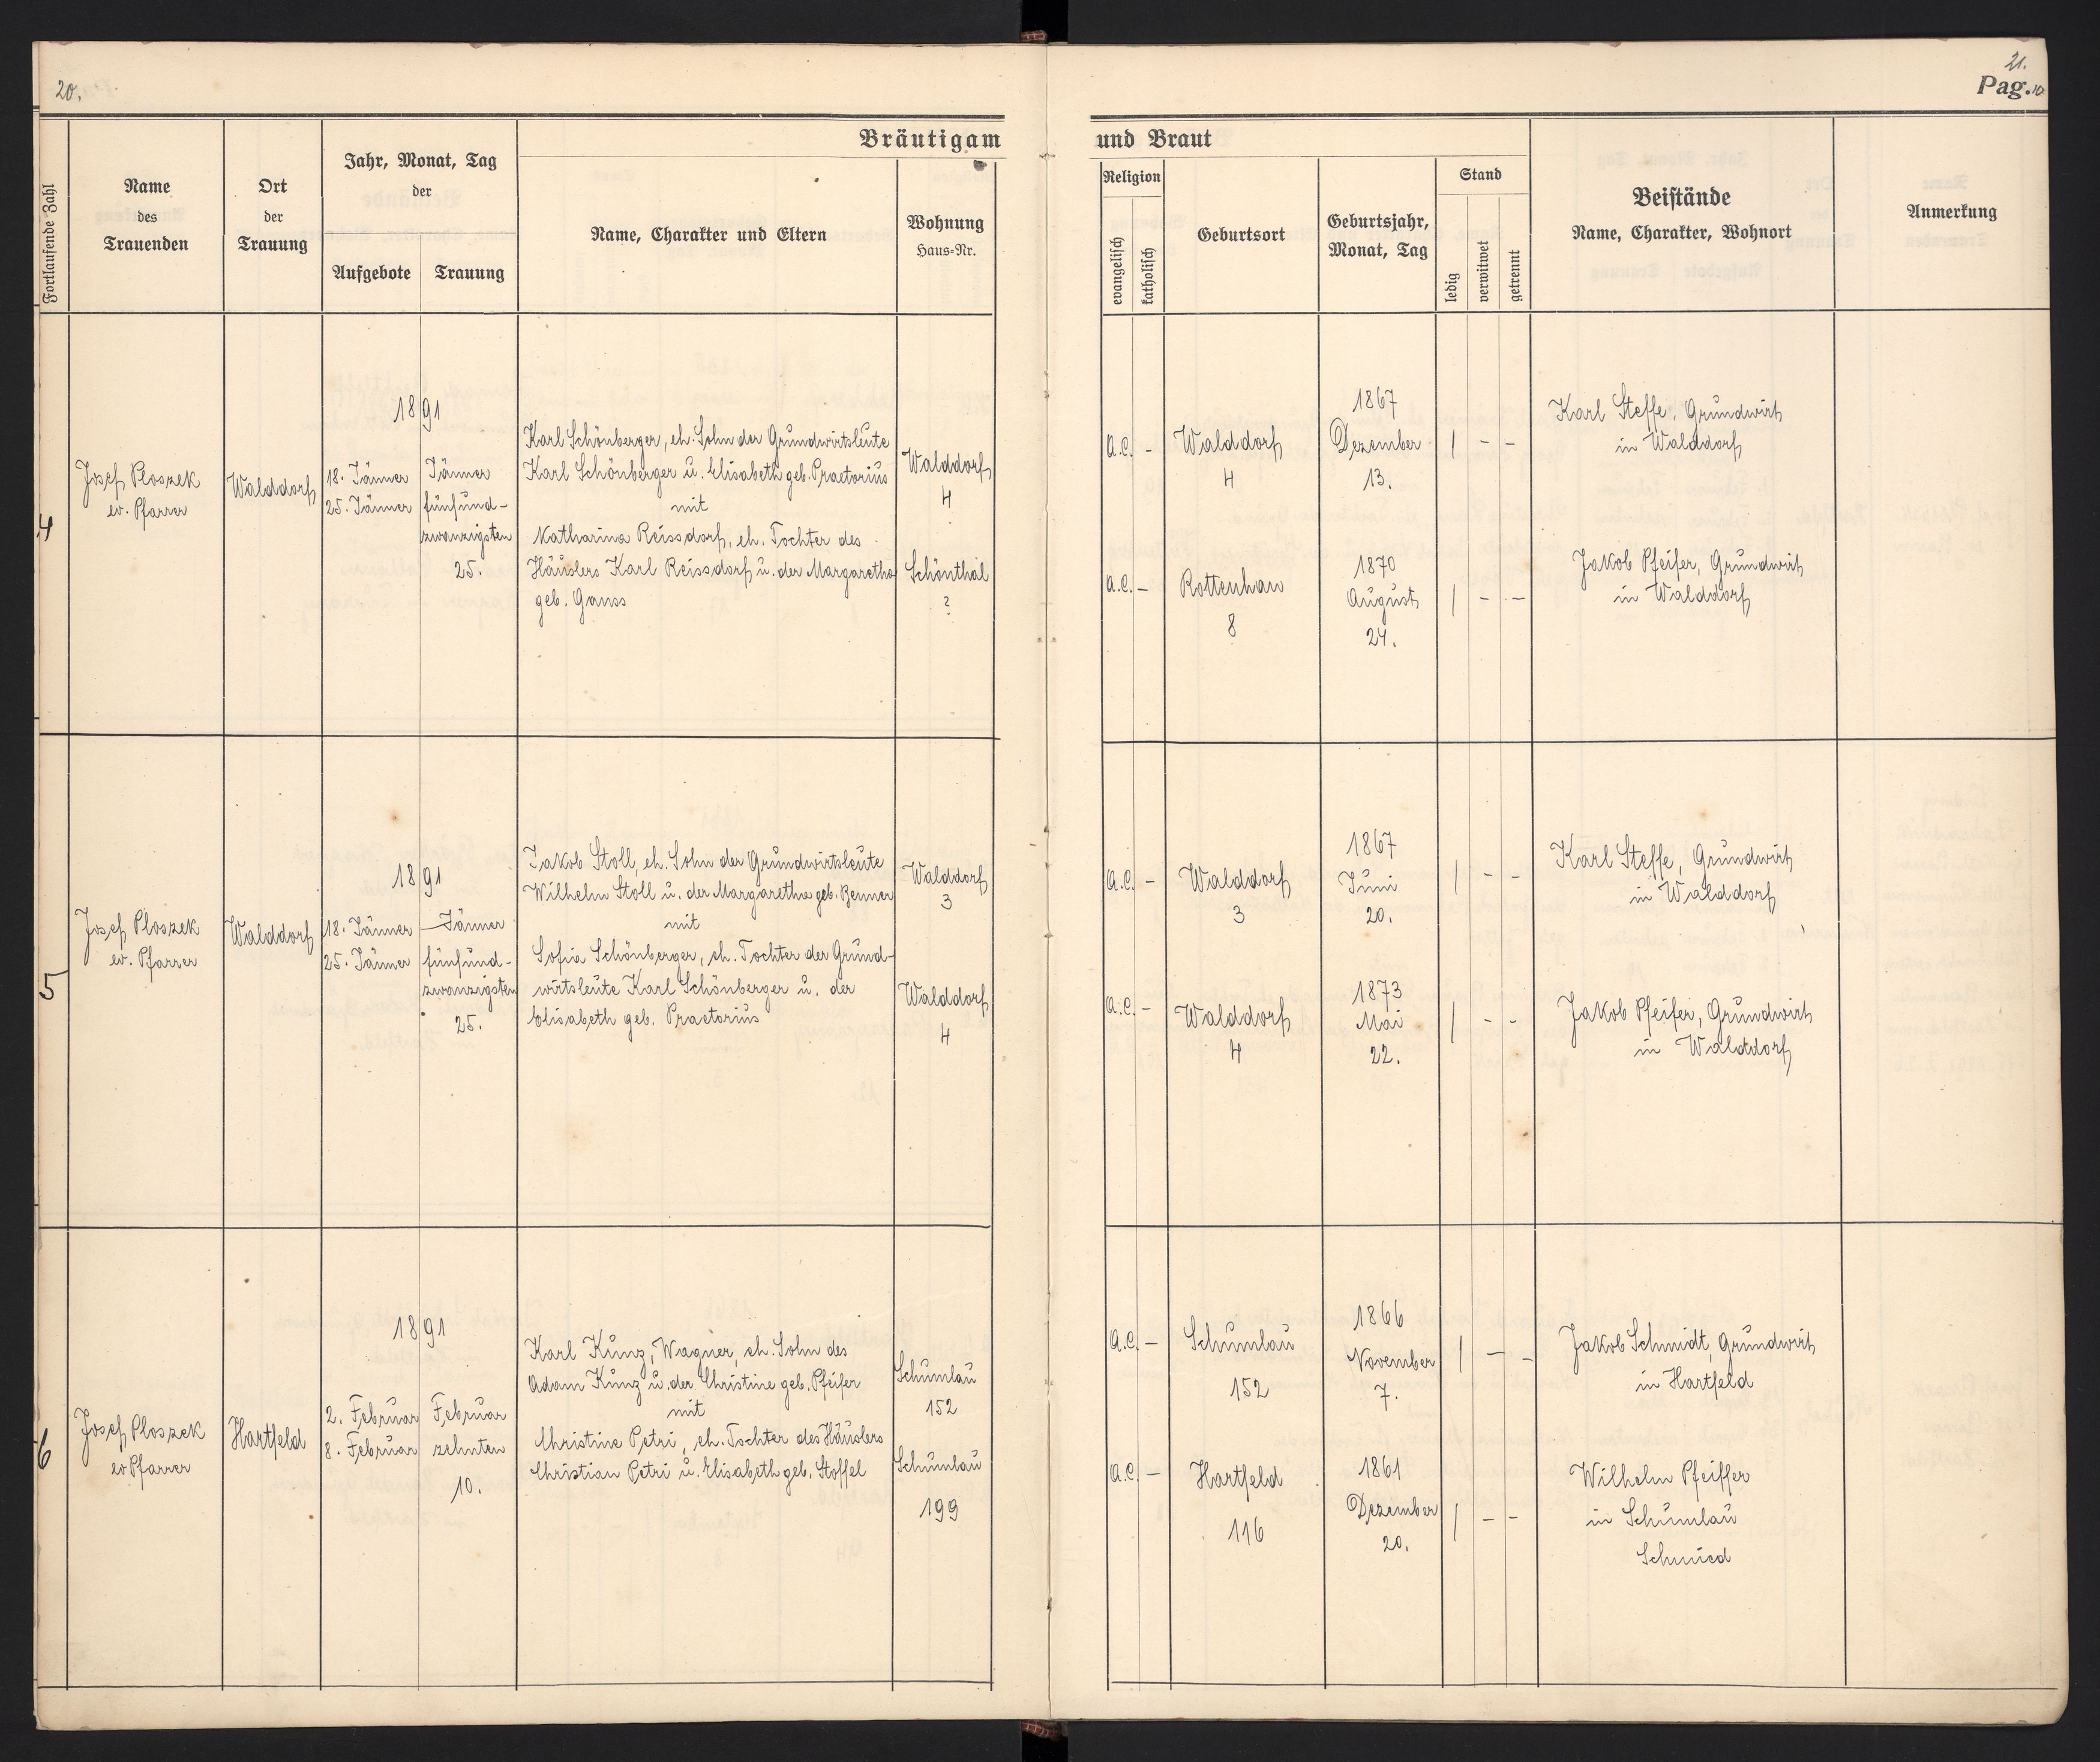 20.
21.
Pag. 10
Bräutigam
und Braut
Fortlaufende Zahl
Name
des
Trauenden
Ort
der
Trauung
Jahr, Monat, Tag
der
Aufgebote
Trauung
Name, Charakter und Eltern
Wohnung
Haus=Nr.
Religion
evangelisch
katholisch
Geburtsort
Geburtsjahr,
Monat, Tag
Stand
ledig
verwitwet
getrennt
Beistände
Name, Charakter, Wohnort
Anmerkung
4
Josef Ploszek
ev. Pfarrer
Walddorf
1891
18. Jänner
25. Jänner
Jänner
fünfund-
zwanzigsten
25.
Karl Schönberger, eh. Sohn der Grundwirtsleute
Karl Schönberger u. Elisabeth geb. Praetorius
mit
Katharina Reissdorf, eh. Tochter des
Häuslers Karl Reissdorf u. der Margaretha
geb. Gauss
Walddorf
4
Schönthal
?
a.c. -
Walddorf
4
1867
Dezember
13.
| - -
Karl Steffe, Grundwirt
in Walddorf
a.c. -
Rottenhan
8
1870
August
24.
| - -
Jakob Pfeifer, Grundwirt
in Walddorf
5
Josef Ploszek
ev. Pfarrer
Walddorf
1891
18. Jänner
25. Jänner
Jänner
fünfund-
zwanzigsten
25.
Jakob Stoll, eh. Sohn der Grundwirtsleute
Wilhelm Stoll u. der Margaretha geb. Benner
mit
Sofia Schönberger, eh. Tochter der Grund-
wirtsleute Karl Schönberger u. der
Elisabeth geb. Praetorius
Walddorf
3
Walddorf
4
a.c. -
Walddorf
3
1867
Juni
20.
| - -
Karl Steffe, Grundwirt
in Walddorf
a.c. -
Walddorf
4
1873
Mai
22.
| - -
Jakob Pfeifer, Grundwirt
in Walddorf
6
Josef Ploszek
ev Pfarrer
Hartfeld
1891
2. Februar
8. Februar
Februar
zehnten
10.
Karl Kunz, Wagner, eh. Sohn des
Adam Kunz u. der Christine geb. Pfeifer
mit
Christine Petri, eh. Tochter des Häuslers
Christian Petri u. Elisabeth geb. Stoffel
Schumlau
152
Schumlau
199
a.c. -
Schumlau
152
1866
November
7.
| - -
Jakob Schmidt, Grundwirt
in Hartfeld
a.c. -
Hartfeld
116
1861
Dezember
20.
| - -
Wilhelm Pfeiffer
in Schumlau
Schmied